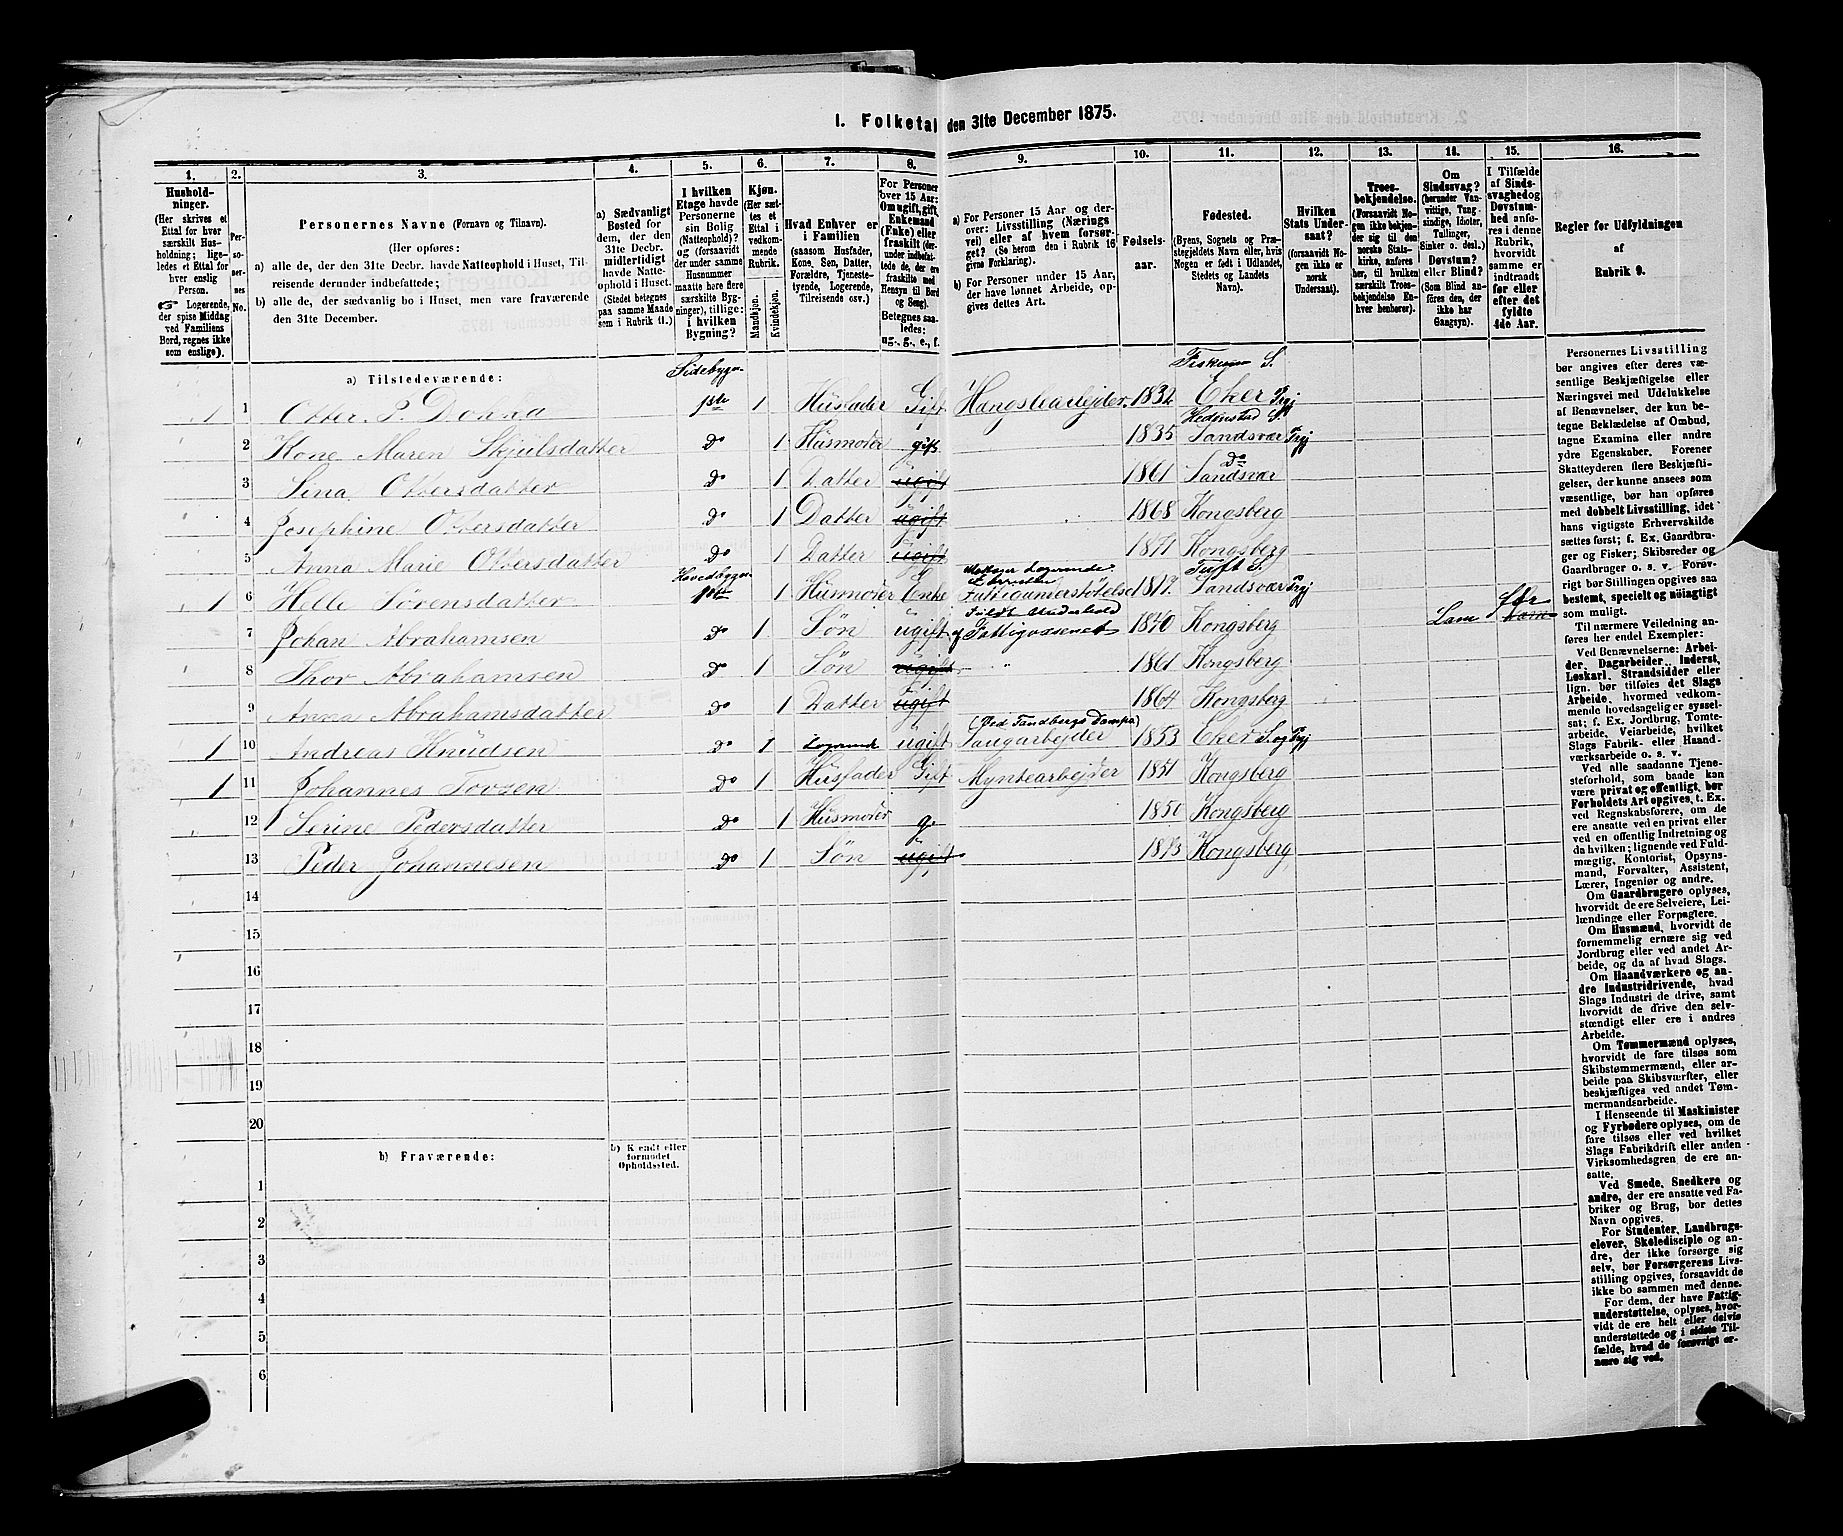 1. Folketal den 31te December 1875.
1. 2. 3. 4. 5. 6. 7. 8. 9. 10. 11. 12. 13. 14. 15. 16.
Hushold-
ninger.
(Her skrives et
Ettal for hver
særskilt Hus-
holdning; lige-
ledes et Ettal for
hver enslig
Person.
Logerende,
der spise Middag
ved Familiens
Bord, regnes ikke
som enslige).
Per-
so-
ner-
nes
No.
Personernes Navne (Fornavn og Tilnavn).
(Her opføres:
a) alle de, der den 31te Decbr. havde Natteophold i Huset, Til-
reisende derunder indbefattede;
b) alle de, der sædvanlig bo i Huset, men vare fraværende
den 31te December.
a) Sædvanligt
Bosted for
dem, der den
31te Decbr.
midlertidigt
havde Natte-
ophold i Huset.
(Stedet betegnes
paa samme Maade
som i Rubrik 11.)
I hvilken
Etage havde
Personerne
sin Bolig
(Natteophold)?
og (forsaavidt
der under samme
Husnummer
maatte høre flere
særskilte Byg-
ninger), tillige:
i hvilken
Bygning?
Kjøn.
(Her sæt-
tes et
Ettal i
vedkom-
mende
Rubrik.
Mandkjøn.
Kvindekjøn.
Hvad Enhver er
i Familien
(saasom Husfader,
Kone, Søn, Datter,
Forældre, Tjeneste-
tyende, Logerende,
Tilreisende osv.)
For Personer
over 15 Aar:
Om ugift, gift,
Enkemand
(Enke) eller
fraskilt (der-
under indbefat-
tede de, der ere
fraskilte med
Hensyn til Bord
og Seng).
Betegnes saa-
ledes:
ug., g., e., f.
a) For Personer 15 Aar og der-
over: Livsstilling (Nærings-
vei) eller af hvem forsør-
get? (Se herom den i Rubrik 16
givne Forklaring).
b) For Personer under 15 Aar,
der have lønnet Arbeide, op-
gives dettes Art.
Fødsels-
aar.
Fødested.
(Byens, Sognets og Præ-
stegjeldets Navn eller, hvis
Nogen er født i Udlandet,
Stedets og Landets
Navn).
Hvilken
Stats Under-
saat?
(forsaavidt No-
gen ikke er
norsk
Undersaat).
Troes-
bekjendelse.
(Forsaavidt No-
gen ikke bekjen-
der sig til den
norske Stats-
kirke, anføres
her, til hvilken
særskilt Troes-
bekjendelse En-
hver henhører).
Om
Sindssvag?
(herunder Van-
vittige, Tung-
sindige, Idioter,
Tullinger,
Sinker o. desl.)
Døvstum?
eller Blind?
(Som Blind an-
føres den, der
ikke har
Gangsyn).
I Tilfælde
af Sinds-
svaghed og
Døvstum-
hed anfø-
res i denne
Rubrik,
hvorvidt
samme er
indtraadt
før eller
efter det
fyldte
4de Aar.
Regler for Udfyldningen
af
Rubrik 9.
a) Tilstedeværende: Sidebygn. Fiskum S.
1 1 Otter P. Donna 1ste 1 Husfader Gift 1832 Eker Prgj
Hedenstad S.
2 Kone Maren Skjulsdatter Do 1 Husmoder gift 1835 Sandsvær Prgj
3 Sina Ottersdatter Do 1 Datter ugift 1861 Do Sandsvær
4 Josephine Ottersdatter Do 1 Datter ugift 1868 Kongsberg
5 Anna Marie Ottersdatter Do 1 Datter ugift 1871 Kongsberg
Hovedbygn. Tuft S.
1 6 Helle Sørensdatter 1ste 1 Husmoder Enke Fattigunderstøttelse 1819 Sandsvær Prgj
Fuldt Underhold
7 Johan Abrahamsen Do 1 Søn ugift af Fattigvæsenet 1840 Kongsberg Lam før
8 Thor Abrahamsen Do 1 Søn ugift " 1861 Kongsberg
9 Anna Abrahamsdatter Do 1 Datter ugift 1864 Kongsberg
(Ved Tandbergs Dampsa)
1 10 Andreas Knudsen Do 1 Logerende ugift Saugarbejder 1853 Eker S. og Prgj
1 11 Johannes Do 1 Husfader Gift Myntearbejder 1851 Kongsberg
12 Serine Pedersdatter Do 1 Husmoder g. 1850 Kongsberg
13 Peder Johannesen Do 1 Søn ugift 1873 Kongsberg
14
15
16
17
18
19
20
b) Fraværende:
b) Kjendt eller
formodet
Opholdssted.
1
2
3
4
5
6
Personernes Livsstilling
bør angives efter deres væ-
sentlige Beskjæftigelse eller
Næringsvei med Udelukkelse
af Benævnelser, der kun be-
tegne Beklædelse af Ombud,
tagne Examina eller andre
ydre Egenskaber. Forener
Skatteyderen flere Beskjæfti-
gelser, der kunne ansees som
væsentlige, bør han opføres
med dobbelt Livsstilling, idet
hans vigtigste Erhvervskilde
sættes først; f. Ex. Gaardbru-
ger og Fisker; Skibsreder og
Gaardbruger o. s. v. Forøv-
rigt bør Stillingen opgives saa
bestemt, specielt og nøiagtigt
som muligt.
Til nærmere Veiledning an-
føres her endel Exempler:
Ved Benævnelserne: Arbei-
der, Dagarbeider, Inderst,
Løskarl, Strandsidder eller
lign. bør tilføies det Slags
Arbeide, hvormed vedkom-
mende hovedsagelig er syssel-
sat; f. Ex. Jordbrug, Tomte-
arbeide, Veiarbeide, hvilket
Slags Fabrik- eller Haand-
værksarbeide o. s. v.
Ved alle saadanne Tjene-
steforhold, som baade kan
være privat og offentligt, bør
Forholdets Art opgives, t. Ex.
ved Regnskabsførere, om de
ere ansatte ved en privat eller
ved en offentlig Indretning og
da hvilken; lignende ved Fuld-
mægtig, Kontorist, Opsyns-
mand, Forvalter, Assistent,
Lærer, Ingeniør og andre.
Om Gaardbrugere oplyses,
hvorvidt de ere Selveiere, Lei-
lændinge eller Forpagtere.
Om Husmænd, hvorvidt de
fornemmelig ernære sig ved
Jordbrug eller ved andet Ar-
beide, og da af hvad Slags.
Om Haandværkere og an-
dre Industridrivende, hvad
Slags Industri de drive, samt
hvorvidt de drive den selv-
stændigt eller ere i andres
Arbeide.
Om Tømmermænd oplyses,
hvorvidt de fare tilsøs som
Skibstømmermænd, eller ar-
beide paa Skibsværfter, eller
beskjæftiges ved andet Tøm-
mermandsarbeide.
I Henseende til Maskinister
og Fyrbødere oplyses, om de
fare tilsøs eller ved hvilket
Slags Fabrikdrift eller anden
Virksomhedsgren de ere an-
satte.
Ved Smede, Snedkere og
andre, der ere ansatte ved Fa-
briker og Brug, bør dettes
Navn opgives.
For Studenter, Landbrugs-
elever, Skoledisciple og an-
dre, der ikke forsørge sig
selv, bør Forsørgerens Livs-
stilling opgives, forsaavidt de
ikke bo sammen med denne.
For dem, der have Fattig-
understøttelse, oplyses, hvor-
vidt de ere helt eller delvis
understøttede og i sidste Til-
fælde, hvad de forøvrigt er-
nære sig ved.